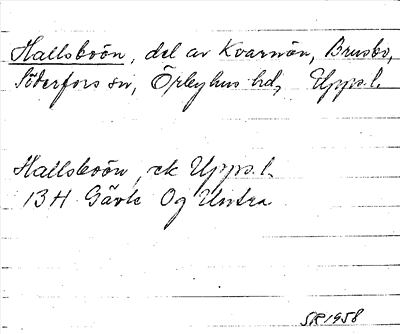 Hallsboön, del av Kvarnön, Brusbo,
Söderfors sn, Örbyhus hd, Upps.l.
Hallsboön, ek Upps.l.
13H Gävle Og Untra
SR1958